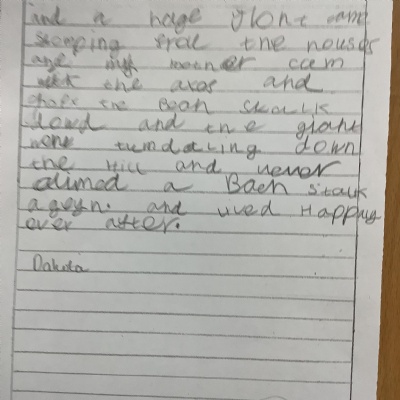 and a hage giont came
stomping frac the houses
and my mother cam
with the axas and
chops the Bean stalk
dowd and the giant
wone tumdaling down
the Hill and never
alimed a Baen stalk
ageyn. and lived Happyy
ever after.
Dakota